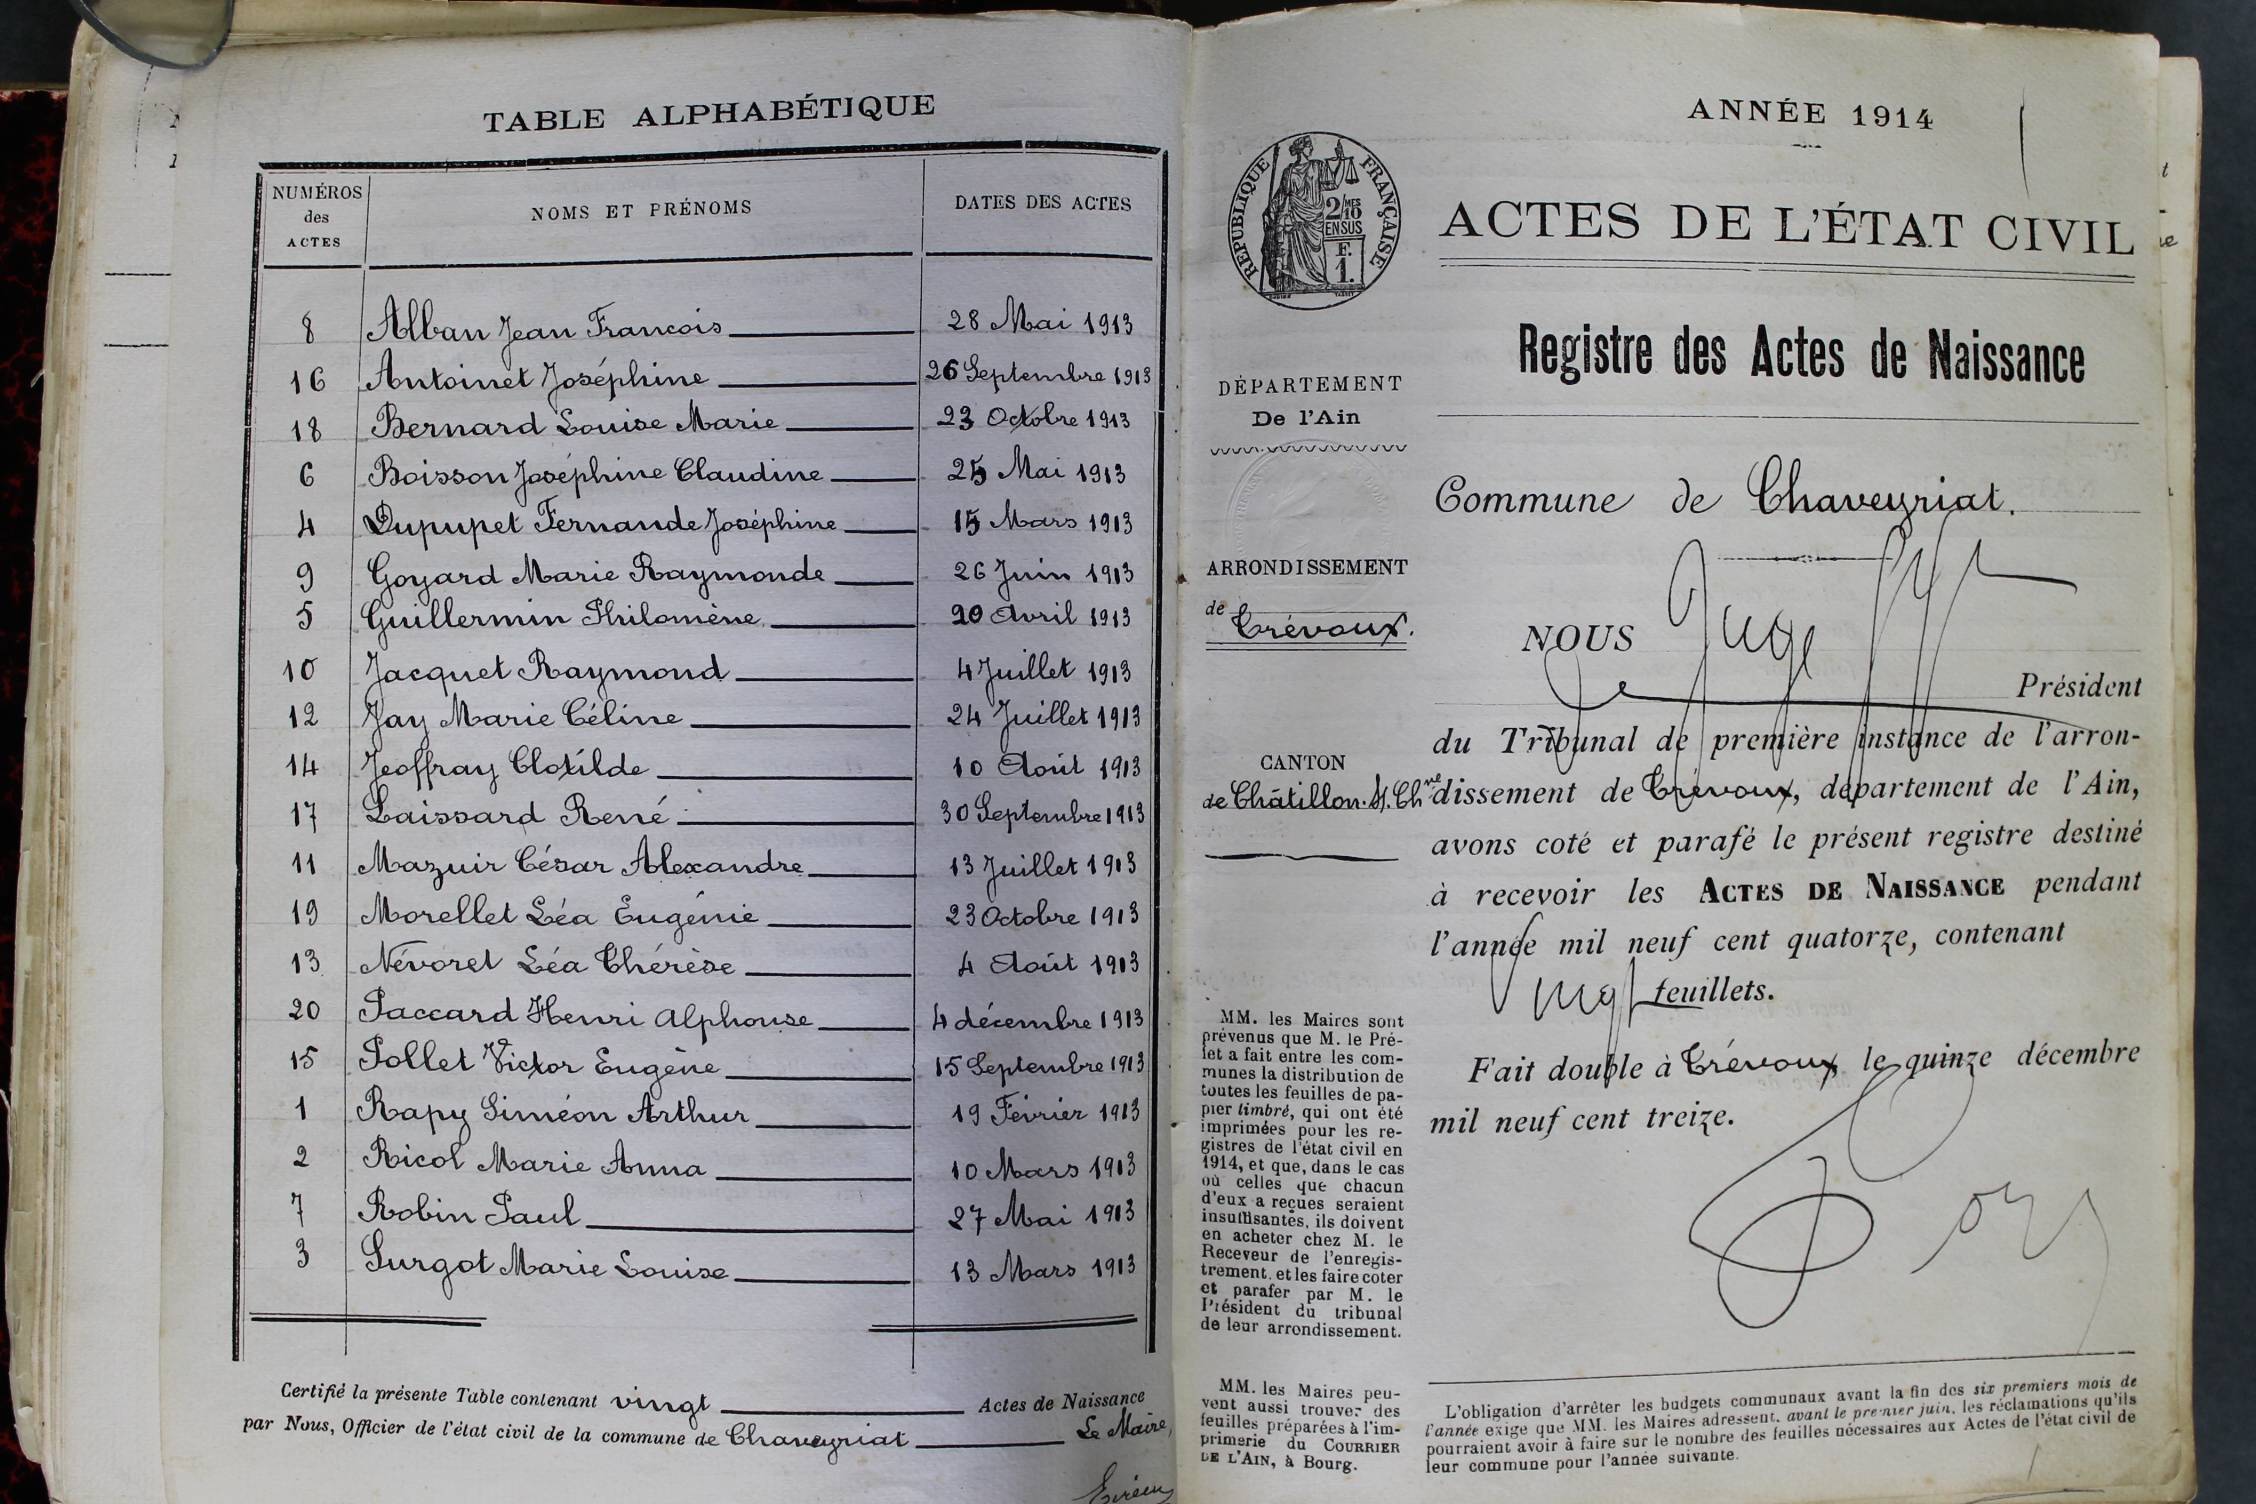 TABLE ALPHABÉTIQUE
NUMÉROS des ACTES NOMS ET PRÉNOMS DATES DES ACTES
8 Alban Jean Francois 28 Mai 1913
16 Antoinet Joséphine 26 Septembre 1913
18 Bernard Louise Marie 23 Octobre 1913
6 Boisson Joséphine Claudine 25 Mai 1913
4 Dupupet Fernande Joséphine 15 Mars 1913
9 Goyard Marie Raymonde 26 Juin 1913
5 Guillermin Philomène 20 Avril 1913
10 Jacquet Raymond 4 Juillet 1913
12 Jay Marie Céline 24 Juillet 1913
14 Jeoffray Clotilde 10 Août 1913
17 Laissard René 30 Septembre 1913
11 Mazuir César Alexandre 13 Juillet 1913
19 Morellet Léa Eugénie 23 Octobre 1913
13 Névoret Léa Thérèse 4 Août 1913
20 Paccard Henri Alphonse 4 décembre 1913
15 Pollet Victor Eugène 15 Septembre 1913
1 Rapy Siméon Arthur 19 Février 1913
2 Ricol Marie Anna 10 Mars 1913
7 Robin Paul 27 Mai 1913
3 Surgot Marie Louise 13 Mars 1913
Certifié la présente Table contenant vingt Actes de Naissance
par Nous, Officier de l'état civil de la commune de Chaveyriat Le Maire,
RÉPUBLIQUE FRANÇAISE
2/10 MES
EN SUS
F.
1.
DÉPARTEMENT
De l'Ain
ARRONDISSEMENT
de Trévoux.
CANTON
de Châtillon. s/. Chne
MM. les Maires sont
prévenus que M. le Pré-
fet a fait entre les com-
munes la distribution de
toutes les feuilles de pa-
pier timbré, qui ont été
imprimées pour les re-
gistres de l'état civil en
1914, et que, dans le cas
où celles que chacun
d'eux a reçues seraient
insuffisantes, ils doivent
en acheter chez M. le
Receveur de l'enregis-
trement, et les faire coter
et parafer par M. le
Président du tribunal
de leur arrondissement.
MM. les Maires peu-
vent aussi trouver des
feuilles préparées à l'im-
primerie du COURRIER
DE L'AIN, à Bourg.
ANNÉE 1914
ACTES DE L'ÉTAT CIVIL
Registre des Actes de Naissance
Commune de Chaveyriat.
NOUS Juge
Président
du Tribunal de première instance de l'arron-
dissement de Trévoux, département de l'Ain,
avons coté et parafé le présent registre destiné
à recevoir les ACTES DE NAISSANCE pendant
l'année mil neuf cent quatorze, contenant
Vingt feuillets.
Fait double à Trévoux, le quinze décembre
mil neuf cent treize.
L'obligation d'arrêter les budgets communaux avant la fin des six premiers mois de
l'année exige que MM. les Maires adressent, avant le premier juin, les réclamations qu'ils
pourraient avoir à faire sur le nombre des feuilles nécessaires aux Actes de l'état civil de
leur commune pour l'année suivante.